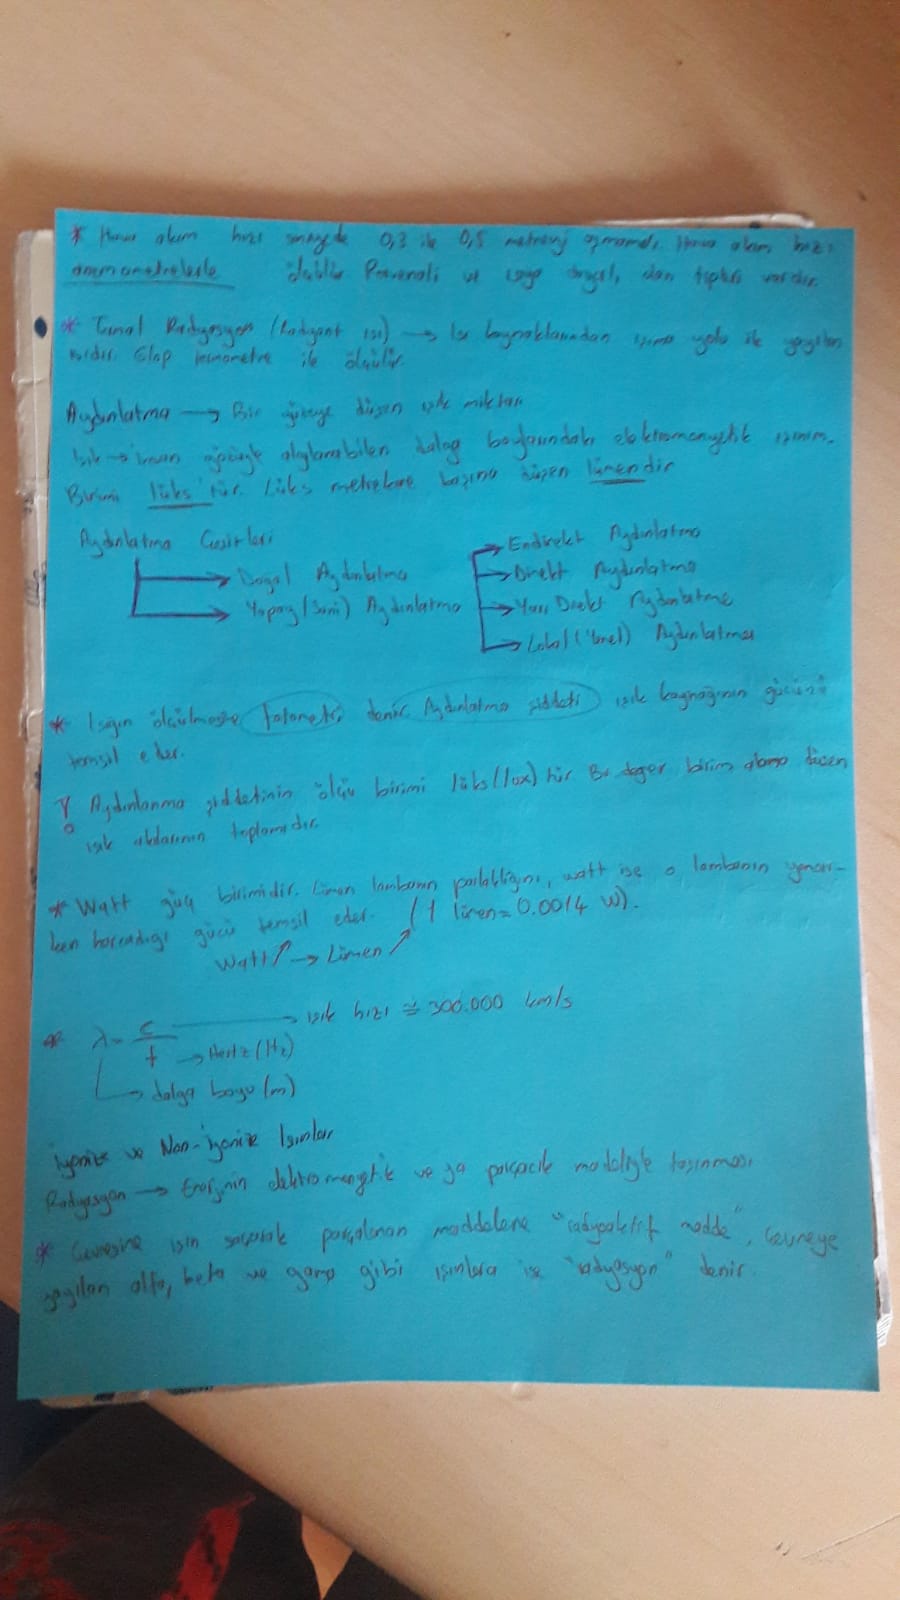 * Hava akım hızı saniyede 0,3 ile 0,5 metreyi aşmamalı. Hava akım hızı
anemometrelerle ölçülür Pervaneli ve olan tipleri vardır.
* Termal Radyasyon (Radyant ısı) → Isı kaynaklarından ışıma yolu ile yayılan
ısıdır. Glop termometre ile ölçülür.
Aydınlatma → Bir yüzeye düşen ışık miktarı
Işık → insan gözüyle algılanabilen dalga boylarındaki elektromanyetik ışınım.
Birimi lüks'tür. Lüks metrekare başına düşen lümendir
Aydınlatma Çeşitleri
→ Doğal Aydınlatma
→ Yapay (Suni) Aydınlatma
→ Endirekt Aydınlatma
→ Direkt Aydınlatma
→ Yarı Direkt Aydınlatma
→ Lokal (Yerel) Aydınlatma
* Işığın ölçülmesine fotometri denir. Aydınlatma şiddeti ışık kaynağının gücünü
temsil eder.
! Aydınlanma şiddetinin ölçü birimi lüks (lux) tür Bu değer birim alana düşen
ışık akılarının toplamıdır.
* Watt güç birimidir. Lümen lambanın parlaklığını, watt ise o lambanın yanar-
ken harcadığı gücü temsil eder. (1 lümen = 0.0014 W).
Watt ↑ → Lümen ↑
* λ = c/f → ışık hızı ≅ 300.000 km/s
→ Hertz (Hz)
→ dalga boyu (m)
İyonize ve Non-İyonize Işınlar
Radyasyon → Enerjinin elektromanyetik ve ya parçacık modeliyle taşınması
* Çevresine ışın saçarak parçalanan maddelere "radyoaktif madde", çevreye
yayılan alfa, beta ve gama gibi ışınlara ise "radyasyon" denir.